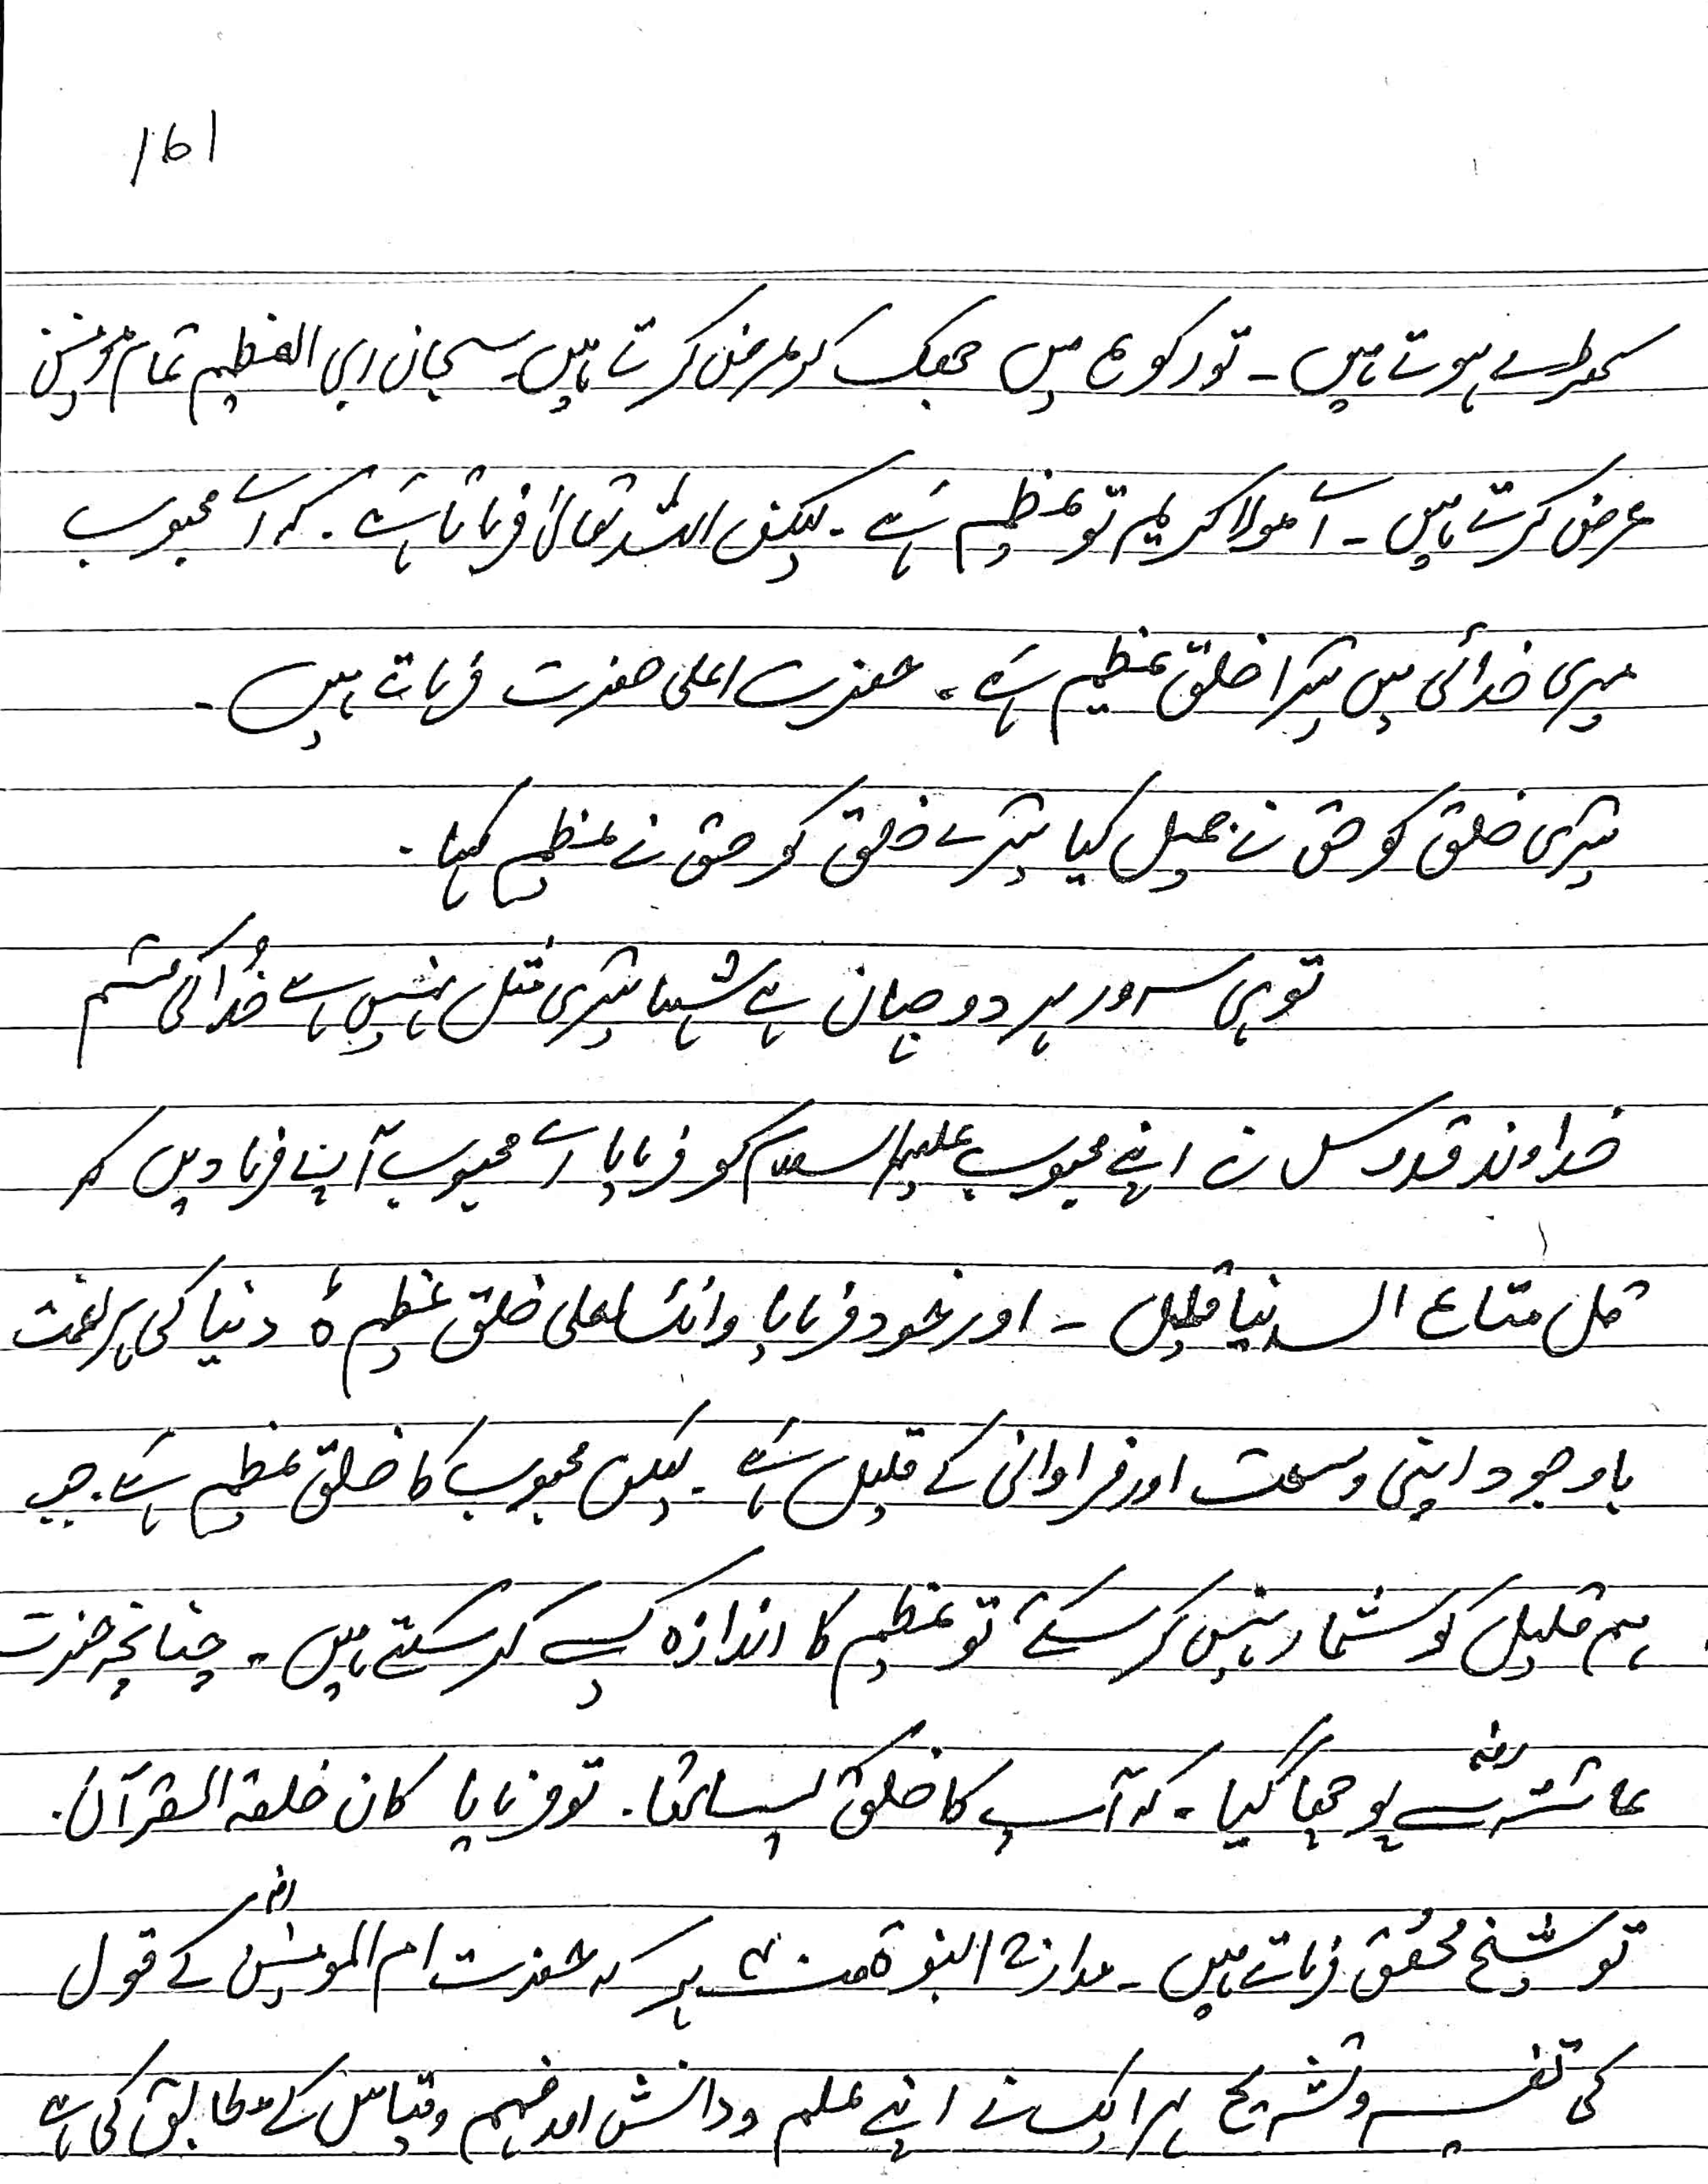 161
کھڑے ہوتے ہیں ۔ تو رکوع میں جھک کر عرض کرتے ہیں۔ سبحان ربی العظیم تمام مومنین
عرض کرتے ہیں ۔ اے مولا کریم تو عظیم ہے ۔ لیکن اللہ تعالیٰ فرماتا ہے ۔ کہ اے محبوب
میری خدائی میں تیرا خلق عظیم ہے ۔ حضرت اعلی حضرت فرماتے ہیں ۔
تیری خلق کو حق نے جمیل کیا تیرے خلق کو حق نے عظیم کہا ۔
تو ہی سرور ہر دو جہان ہے شہا تیری مثل نہیں ہے خُدا کی قسم
خداوند قدوس نے اپنے محبوب علیہ السلام کو فرمایا اے محبوب آپ فرما دیں کہ
قل متاع الدنیا قلیل ۔ اور خود فرمایا وانک لعلی خلق عظیم ہ دنیا کی ہر نعمت
باوجود اپنی وسعت اور فراوانی کے قلیل ہے ۔ لیکن محبوب کا خلق عظیم ہے ۔ جب
ہم قلیل کو شمار نہیں کر سکتے تو عظیم کا اندازہ کیسے کر سکتے ہیں ۔ چنانچہ حضرت
عائشہ رضہ سے پوچھا گیا ۔ کہ آپ کا خلق کیسا تھا ۔ تو فرمایا کان خلقہ القرآن ۔
تو شیخ محقق فرماتے ہیں ۔ مدارج النبوۃ پر کہ حضرت ام المومنین رضہ کے قول
کی تفسیر و تشریح ہر ایک نے اپنے علم و دانش اور فہم و قیاس کے مطابق کی ہے